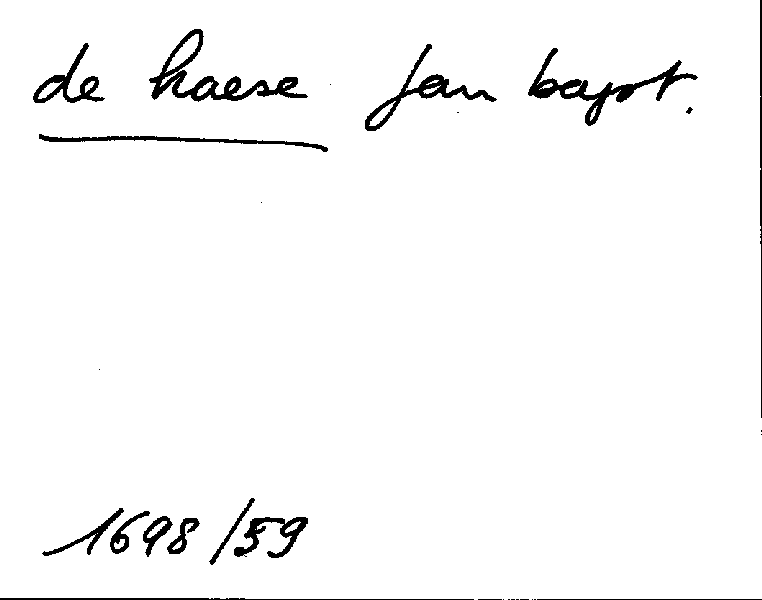 de haese Jan bapt.
1698/59